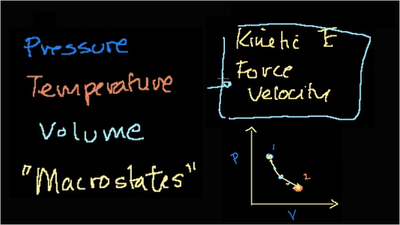 Pressure
Temperature
Volume
"Macrostates"
Kinetic E
Force
Velocity
P
1
2
V